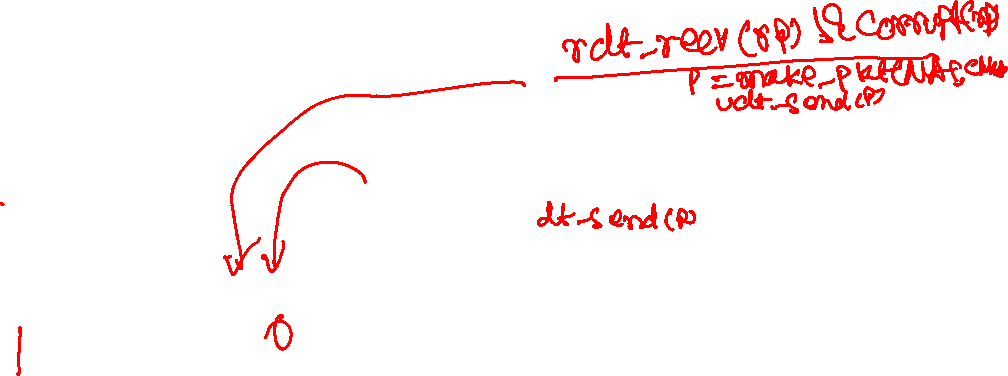 rdt_rcev(rp) && Corrupt(rp)
P = make_pkt(NAK, chk
udt_send(P)
dt_send(P)
1 0